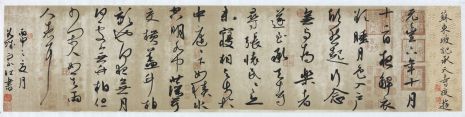 蘇東坡記承天寺夜遊
元豐六年十月
十二日夜解衣
欲睡月色入戶
欣然起行念
無與為樂者
遂至承天寺
尋張懷民民亦
未寢相與步於
中庭庭下如積水
空明水中藻荇
交橫蓋竹柏
影也何夜無月
何處無竹柏但
少閑人如吾兩
人者耳